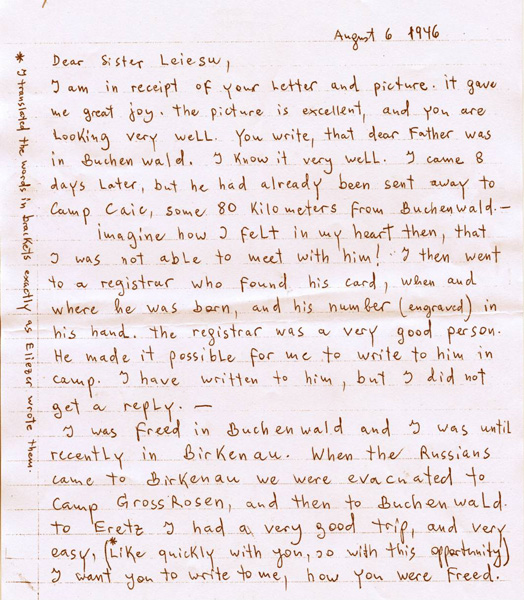 August 6 1946
Dear Sister Leiesu,
I am in receipt of your letter and picture. it gave
me great joy. the picture is excellent, and you are
Looking very well. You write, that dear Father was
in Buchenwald. I know it very well. I came 8
days Later, but he had already been sent away to
Camp Caic, some 80 Kilometers from Buchenwald.—
imagine how I felt in my heart then, that
I was not able to meet with him! I then went
to a registrar who found his card, when and
where he was born, and his number (engraved) in
his hand. the registrar was a very good person.
He made it possible for me to write to him in
camp. I have written to him, but I did not
get a reply. —
I was freed in Buchenwald and I was until
recently in Birkenau. When the Russians
came to Birkenau we were evacuated to
Camp Gross'Rosen, and then to Buchenwald.
to Eretz I had a very good trip, and very
easy, (*Like quickly with you, so with this opportunity)
I want you to write to me, how you were Freed.
* I translated the words in brackets exactly as Eliezer wrote them.